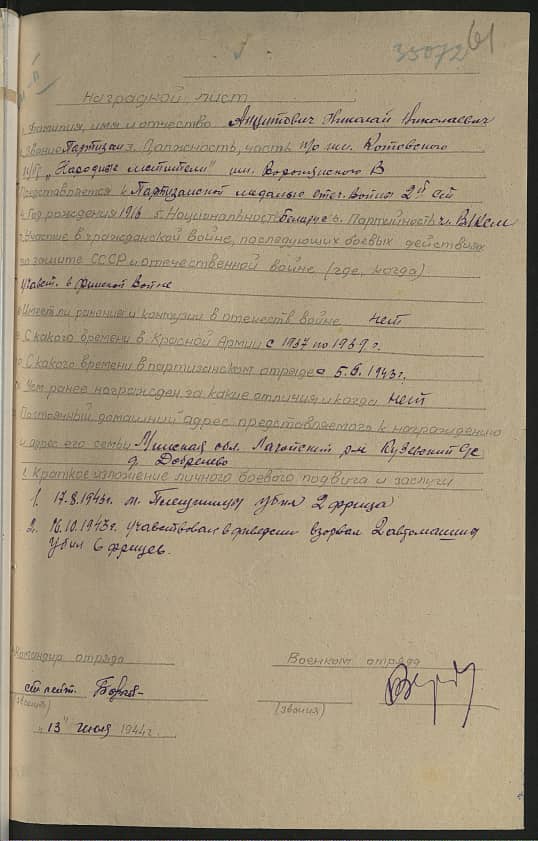 35072 61
Наградной лист
1. Фамилия, имя и отчество Анципович Николай Николаевич
2. Звание Партизан 3. Должность, часть п/о им. Котовского
п/бр. „Народные мстители" им. Воронянского В
Представляется к Партизанской медалью отеч. Война 2й ст
4. Год рождения 1916 5. Национальность беларус 6. Партийность чл. ВЛКСМ
7. Участие в гражданской войне, последующих боевых действиях
по защите СССР и отечественной войне (где, когда)
Участ. в финской войне
8. Имеет ли ранения и контузии в отечеств войне нет
9. С какого времени в Красной Армии с 1937 по 1939 г.
10. С какого времени в партизанском отряде с 5.6.1943г.
11. Чем ранее награжден за какие отличия и когда нет
12. Постоянный домашний адрес представляемого к награждению
и адрес его семьи Минская обл. Логойский р-н
д.
I. Краткое изложение личного боевого подвига и заслуги
1. 17.8.1943г. м. Плещеницы убил 2 фрица
2. 16.10.1943г. учавствовал в диверсии взорвал 2 автомашины
убил 6 фрицев.
Командир отряда Военком отряда
ст. лейт.
(звания) (звания)
„13" июля 1944 г.